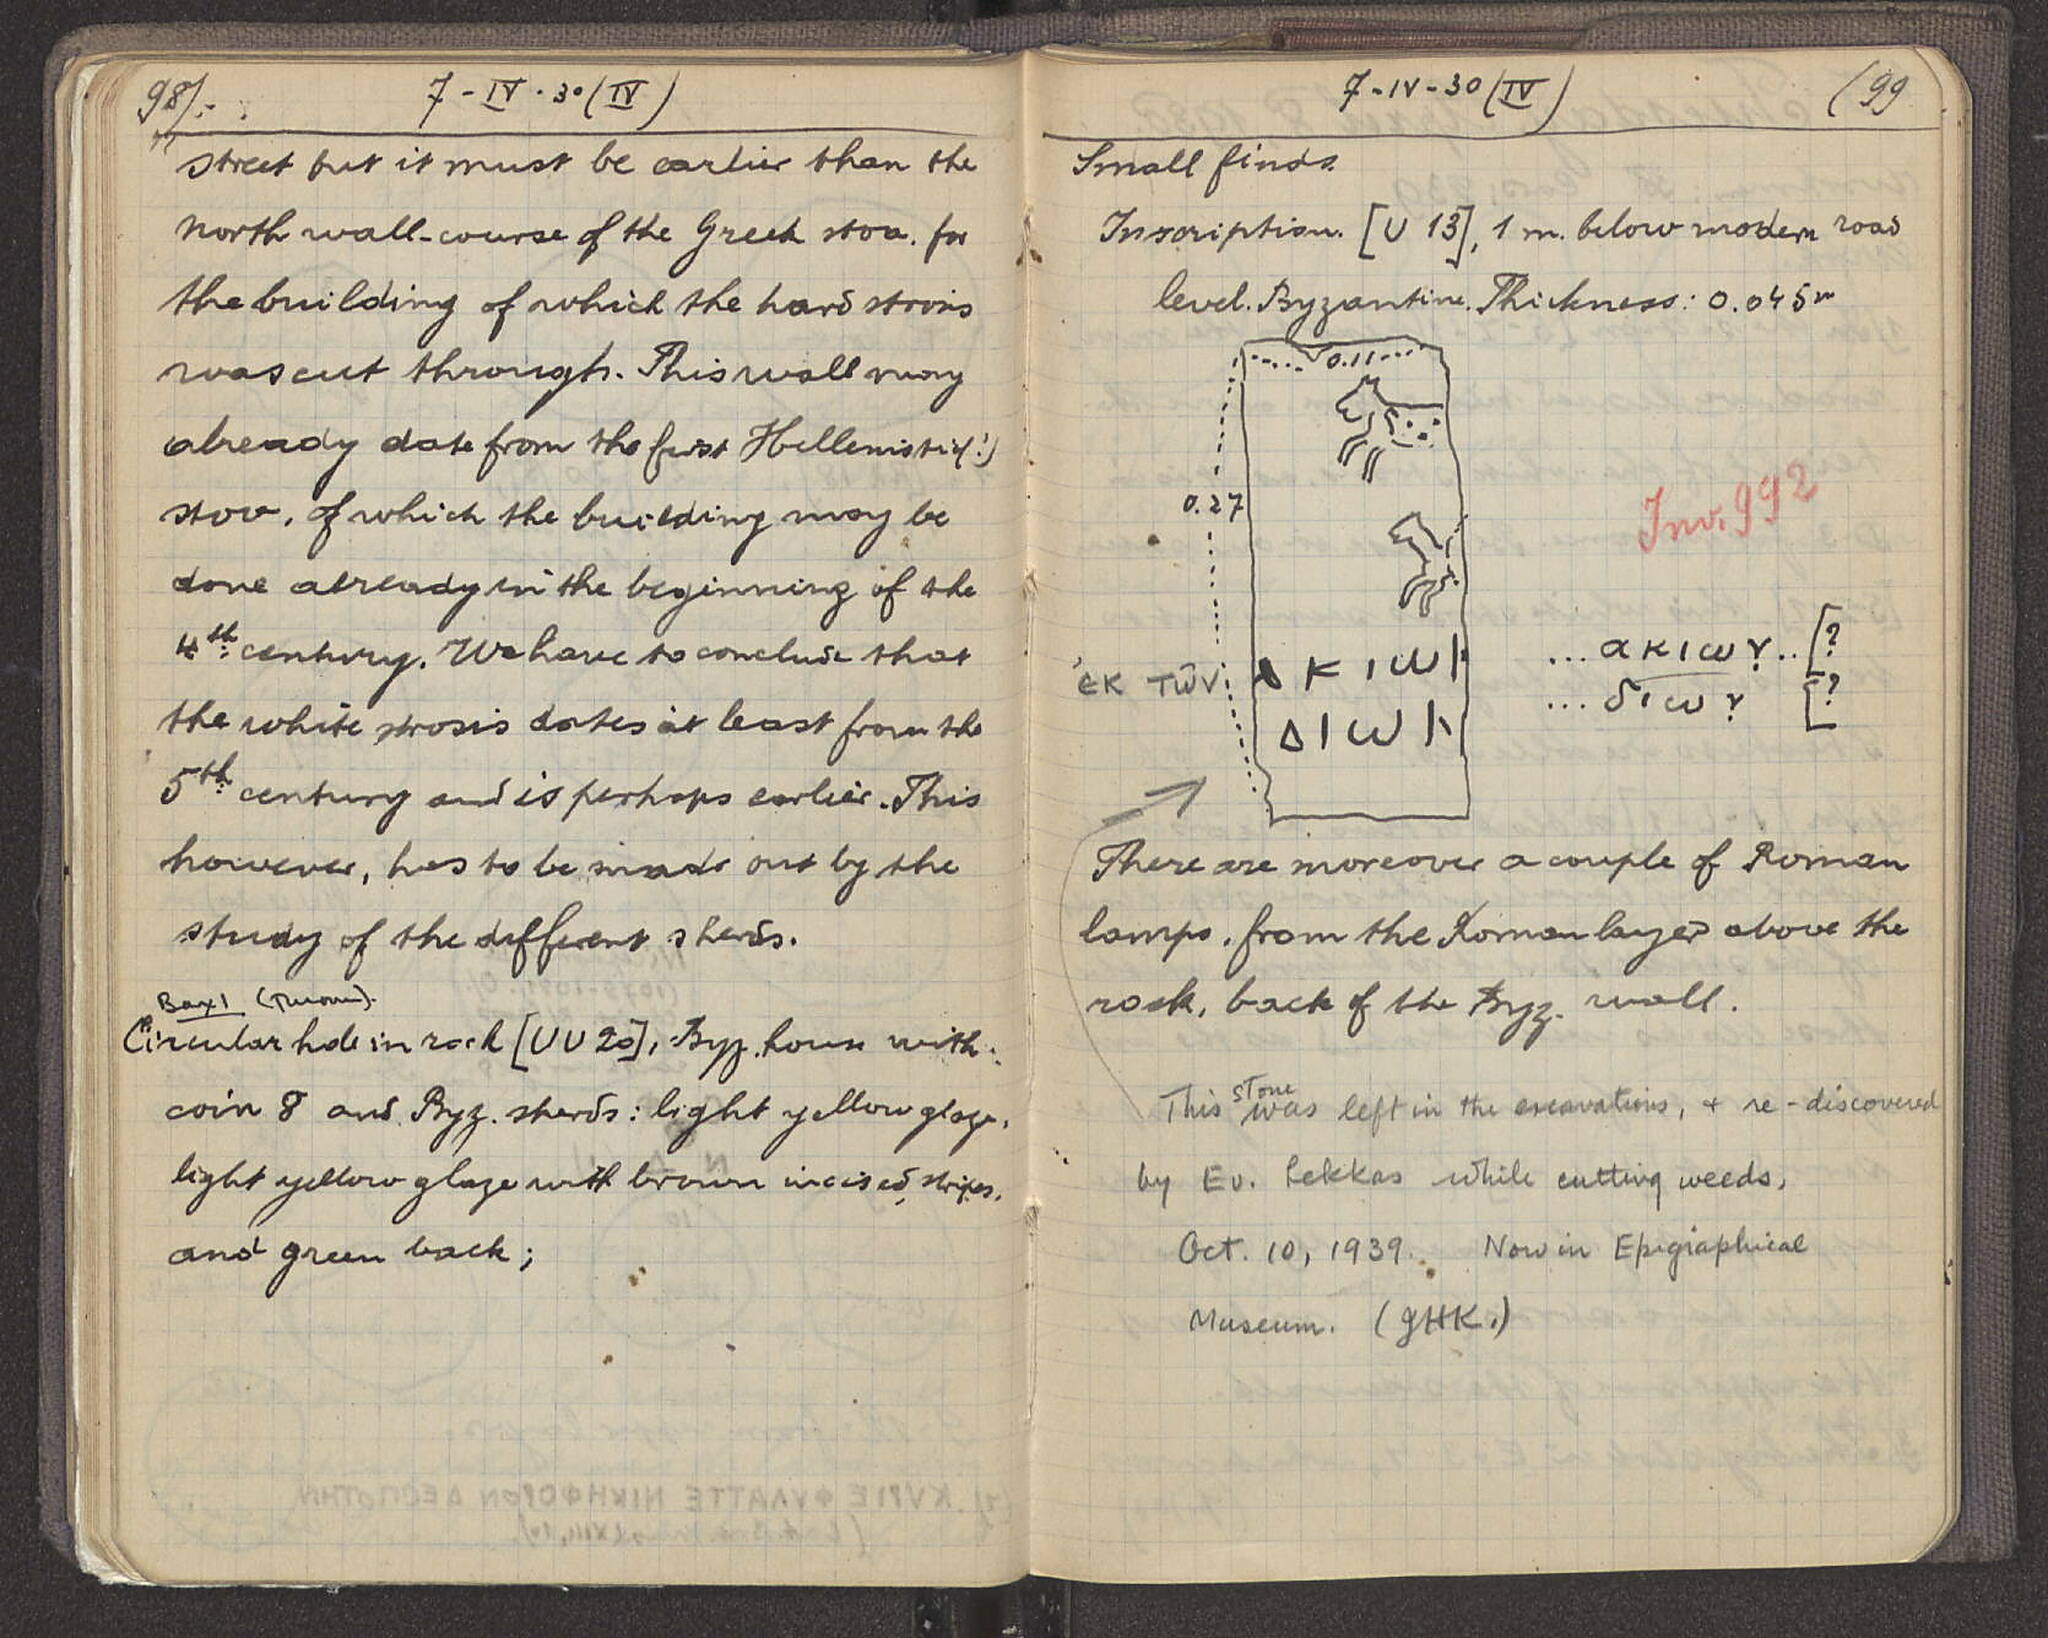 98/.
7 - IV - 30 (IV)
street but it must be earlier than the
north wall-course of the Greek stoa, for
the building of which the hard strosis
was cut through. This wall may
already date from the first Hellenistic(?)
stoa, of which the building may be
done already in the beginning of the
4th century. We have to conclude that
the white strosis dates at least from the
5th century and is perhaps earlier. This
however, has to be made out by the
study of the different sherds.
Box 1
Circular hole in rock [UU 20], Byz. house with
coin 8 and Byz. sherds: light yellow glaze,
light yellow glaze with brown incised stripes,
and green back;
7 - IV - 30 (IV)
(99
Small finds.
Inscription. [U 13], 1 m. below modern road
level. Byzantine. Thickness: 0.045m
0.11
0.27
Inv. 992
ἐκ τῶν Δ Κ Ι Ω Ν ... α κ ι ω ν .. [?
Δ Ι Ω Ν ... δ ι ω ν [?
There are moreover a couple of Roman
lamps, from the Roman layer above the
rock, back of the Byz. wall.
This stone was left in the excavations, + re-discovered
by Ev. Lekkas while cutting weeds,
Oct. 10, 1939. Now in Epigraphical
Museum. (GHK.)